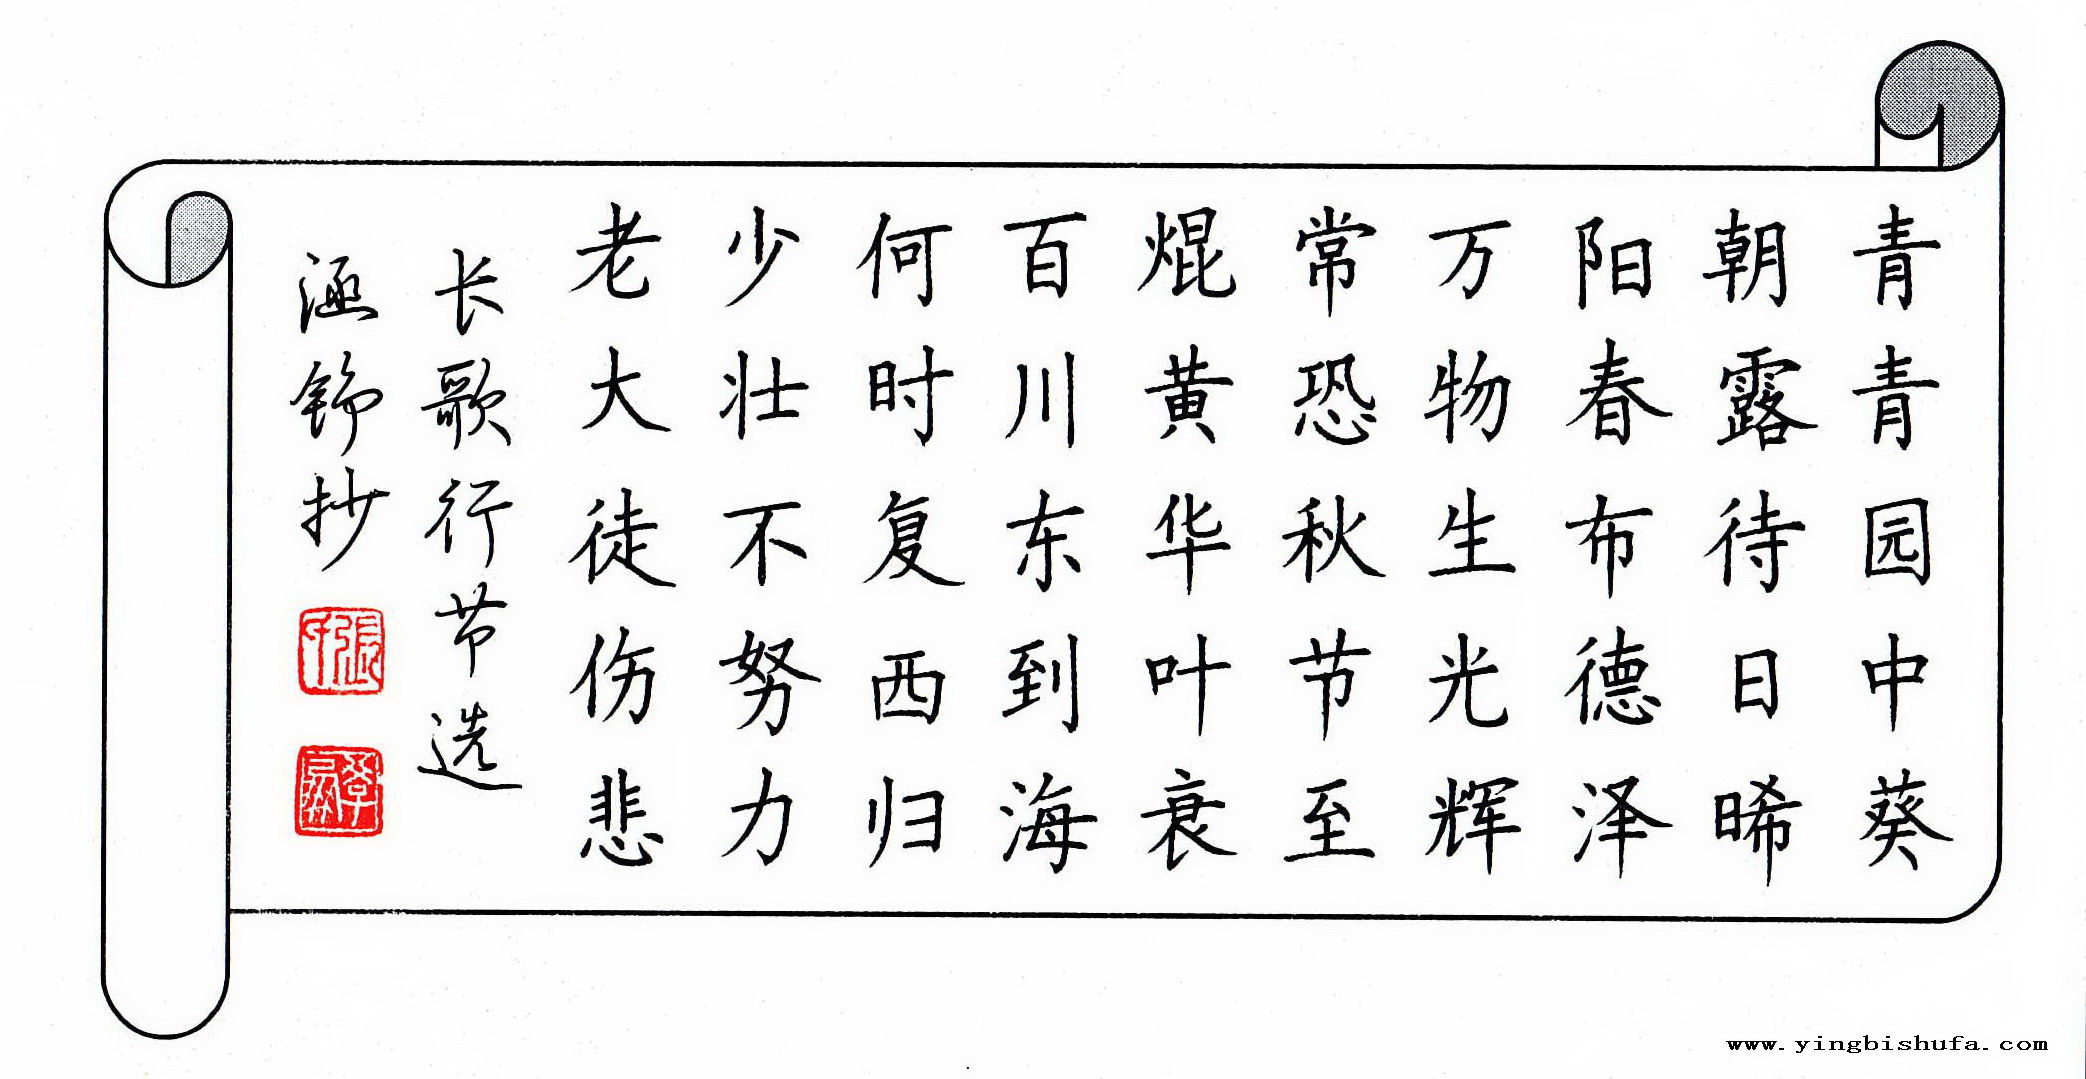 青青园中葵
朝露待日晞
阳春布德泽
万物生光辉
常恐秋节至
焜黄华叶衰
百川东到海
何时复西归
少壮不努力
老大徒伤悲
长歌行节选
涵铮抄
www.yingbishufa.com